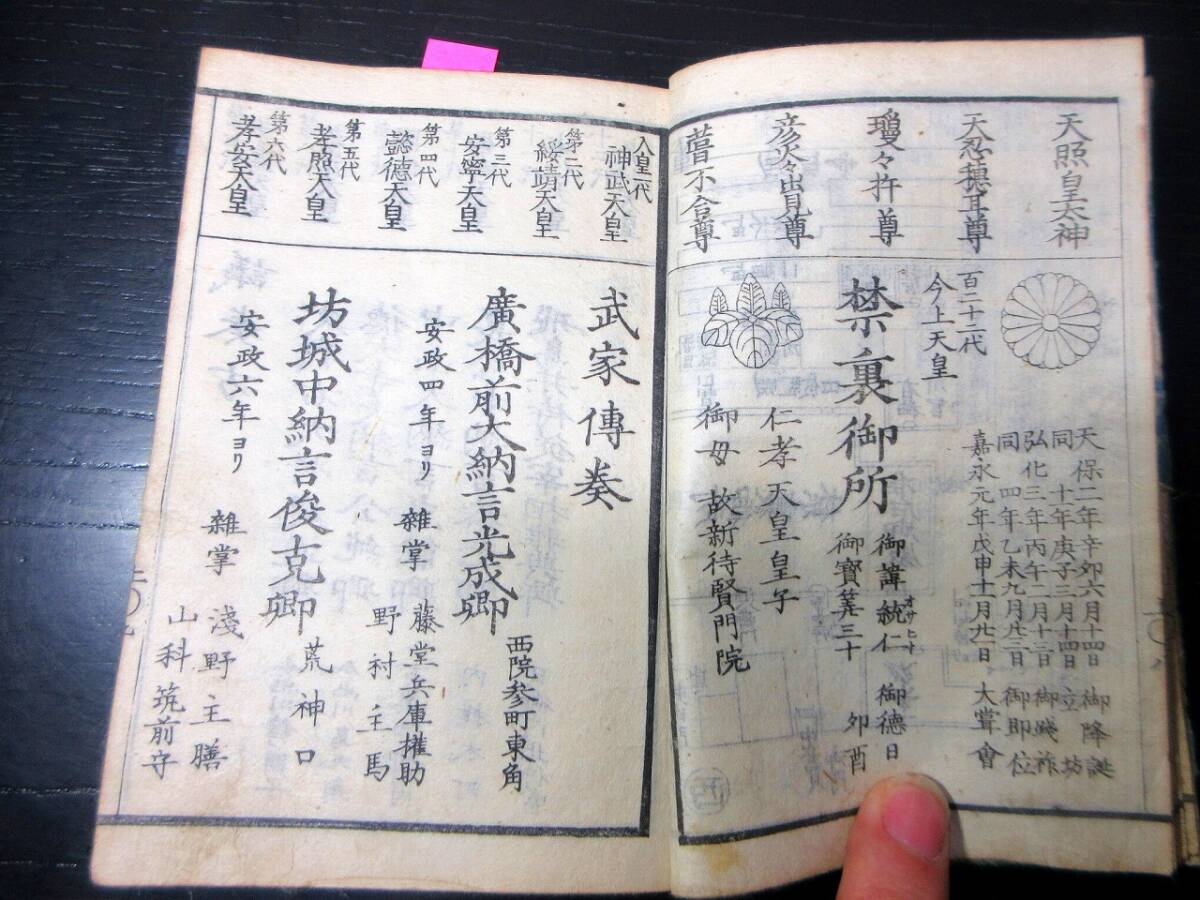 天照皇太神
天忍穂耳尊
瓊々杵尊
彦火々出見尊
葺不合尊
百二十二代
今上天皇
禁裏御所
天保二年辛卯六月十四日 御降誕
同 十年庚子三月十四日 立坊
弘化三年丙午二月十三日 御踐祚
同 四年乙未九月廿三日 御即位
嘉永元年戊申十一月廿一日 大嘗會
御諱統仁 御德日
オサヒト
御寶筭三十 卯酉
仁孝天皇皇子
御母 故新待賢門院
人皇一代
神武天皇
第二代
綏靖天皇
第三代
安寧天皇
第四代
懿德天皇
第五代
孝照天皇
第六代
孝安天皇
武家傳奏
廣橋前大納言光成卿
西院参町東角
安政四年ヨリ
雜掌 藤堂兵庫權助
野村主馬
坊城中納言俊克卿
荒神口
安政六年ヨリ
雜掌 淺野主膳
山科筑前守